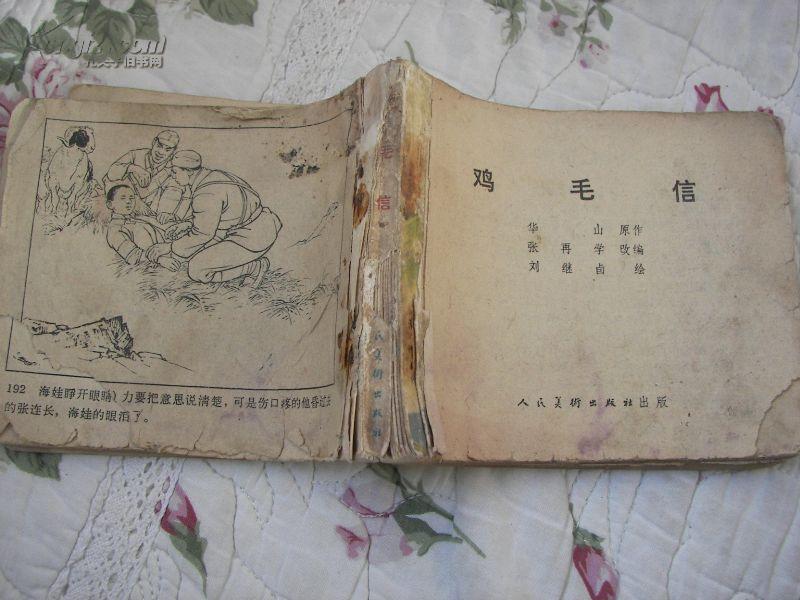 孔夫子旧书网
192 海娃睁开眼睛 力要把意思说清楚，可是伤口疼的他昏过去
的张连长，海娃的眼泪了。
毛信
人民美術出版社
鸡毛信
华山 原作
张再学 改编
刘继卣 绘
人民美術出版社出版